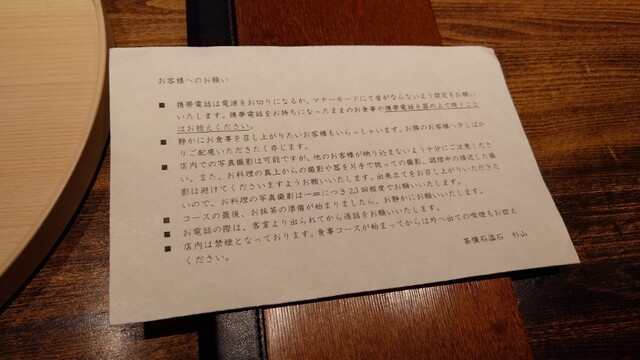 お客様へのお願い
■ 携帯電話は電源をお切りになるか、マナーモードにて音がならないよう設定をお願い
いたします。携帯電話をお持ちになったままのお食事や携帯電話を器の上で扱うこと
はお控えください。
■ 静かにお食事を召し上がりたいお客様もいらっしゃいます。お隣のお客様へ少しばか
りご配慮いただきたく存じます。
■ 店内での写真撮影は可能ですが、他のお客様が映り込まないよう十分にご注意くださ
い。また、お料理の真上からの撮影や器を片手で持っての撮影、調理中の接近した撮
影は避けてくださいますようお願いいたします。出来立てをお召し上がりいただきた
いので、お料理の写真撮影は一皿につき2,3回程度でお願いいたします。
■ コースの最後、お抹茶の準備が始まりましたら、お静かにお願いいたします。
■ お電話の際は、客室より出られてから通話をお願いいたします。
■ 店内は禁煙となっております。食事コースが始まってからは外へ出ての喫煙もお控え
ください。
茶懐石温石 杉山